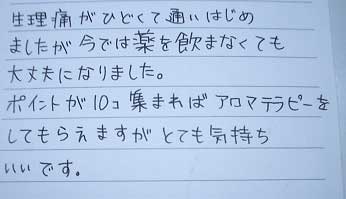 生理痛がひどくて通いはじめ
ましたが今では薬を飲まなくても
大丈夫になりました。
ポイントが10コ集まればアロマテラピーを
してもらえますがとても気持ち
いいです。